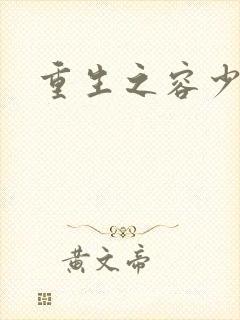 重生之容少
黄文帝